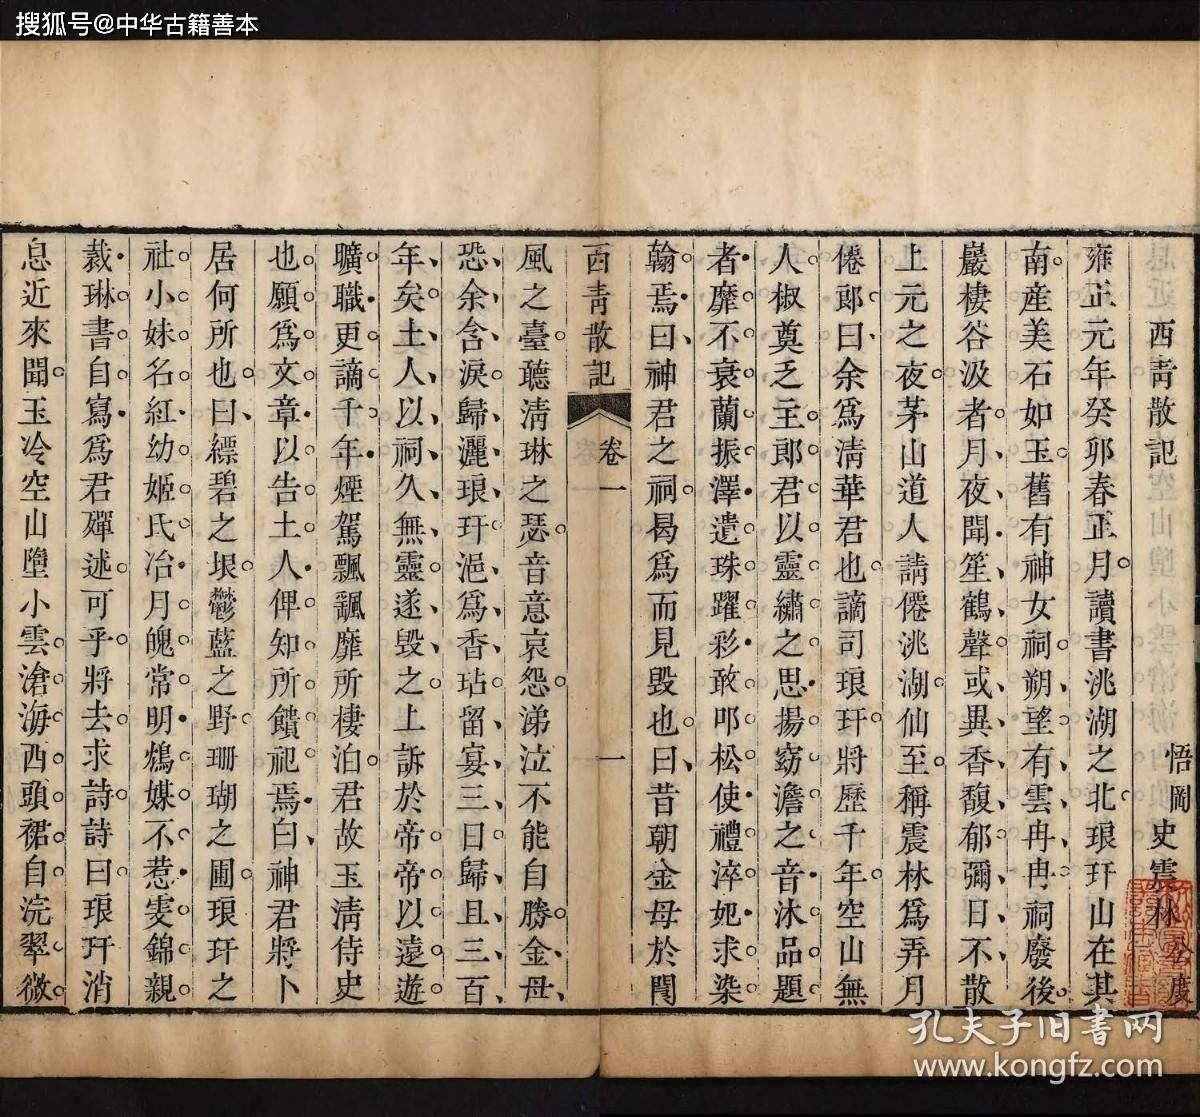 搜狐号@中华古籍善本
西青散記
悟岡史震林公度
雍正元年癸卯春正月讀書洮湖之北琅玕山在其
南産美石如玉舊有神女祠朔望有雲冉冉祠廢後
巖棲谷汲者月夜聞笙鶴聲或異香馥郁彌日不散
上元之夜茅山道人請僊洮湖仙至稱震林爲弄月
僊郎曰余爲清華君也謫司琅玕將歷千年空山無
人椒奠乏主郎君以靈繡之思揚窈澹之音沐品題
者靡不衰蘭振澤遺珠躍彩敢叩松使禮淬妑求染
翰焉曰神君之祠曷爲而見毀也曰昔朝金母於閬
西青散記
卷一
一
風之臺聽淸琳之瑟音意哀怨涕泣不能自勝金母
恐余含淚歸灑琅玕浥爲香玷留宴三日歸且三百
年矣土人以祠久無靈遂毀之上訴於帝帝以遠遊
曠職更謫千年煙駕飄颻靡所棲泊君故玉清侍史
也願爲文章以告土人俾知所饋祀焉白神君將卜
居何所也曰縹碧之垠鬱藍之野珊瑚之圃琅玕之
社小妹名紅幼姬氏冶月魄常明鴆媒不惹雯錦親
裁琳書自寫爲君殫述可乎將去求詩詩曰琅玕消
息近來聞玉冷空山墮小雲滄海西頭裙自浣翠微
孔夫子旧书网
www.kongfz.com